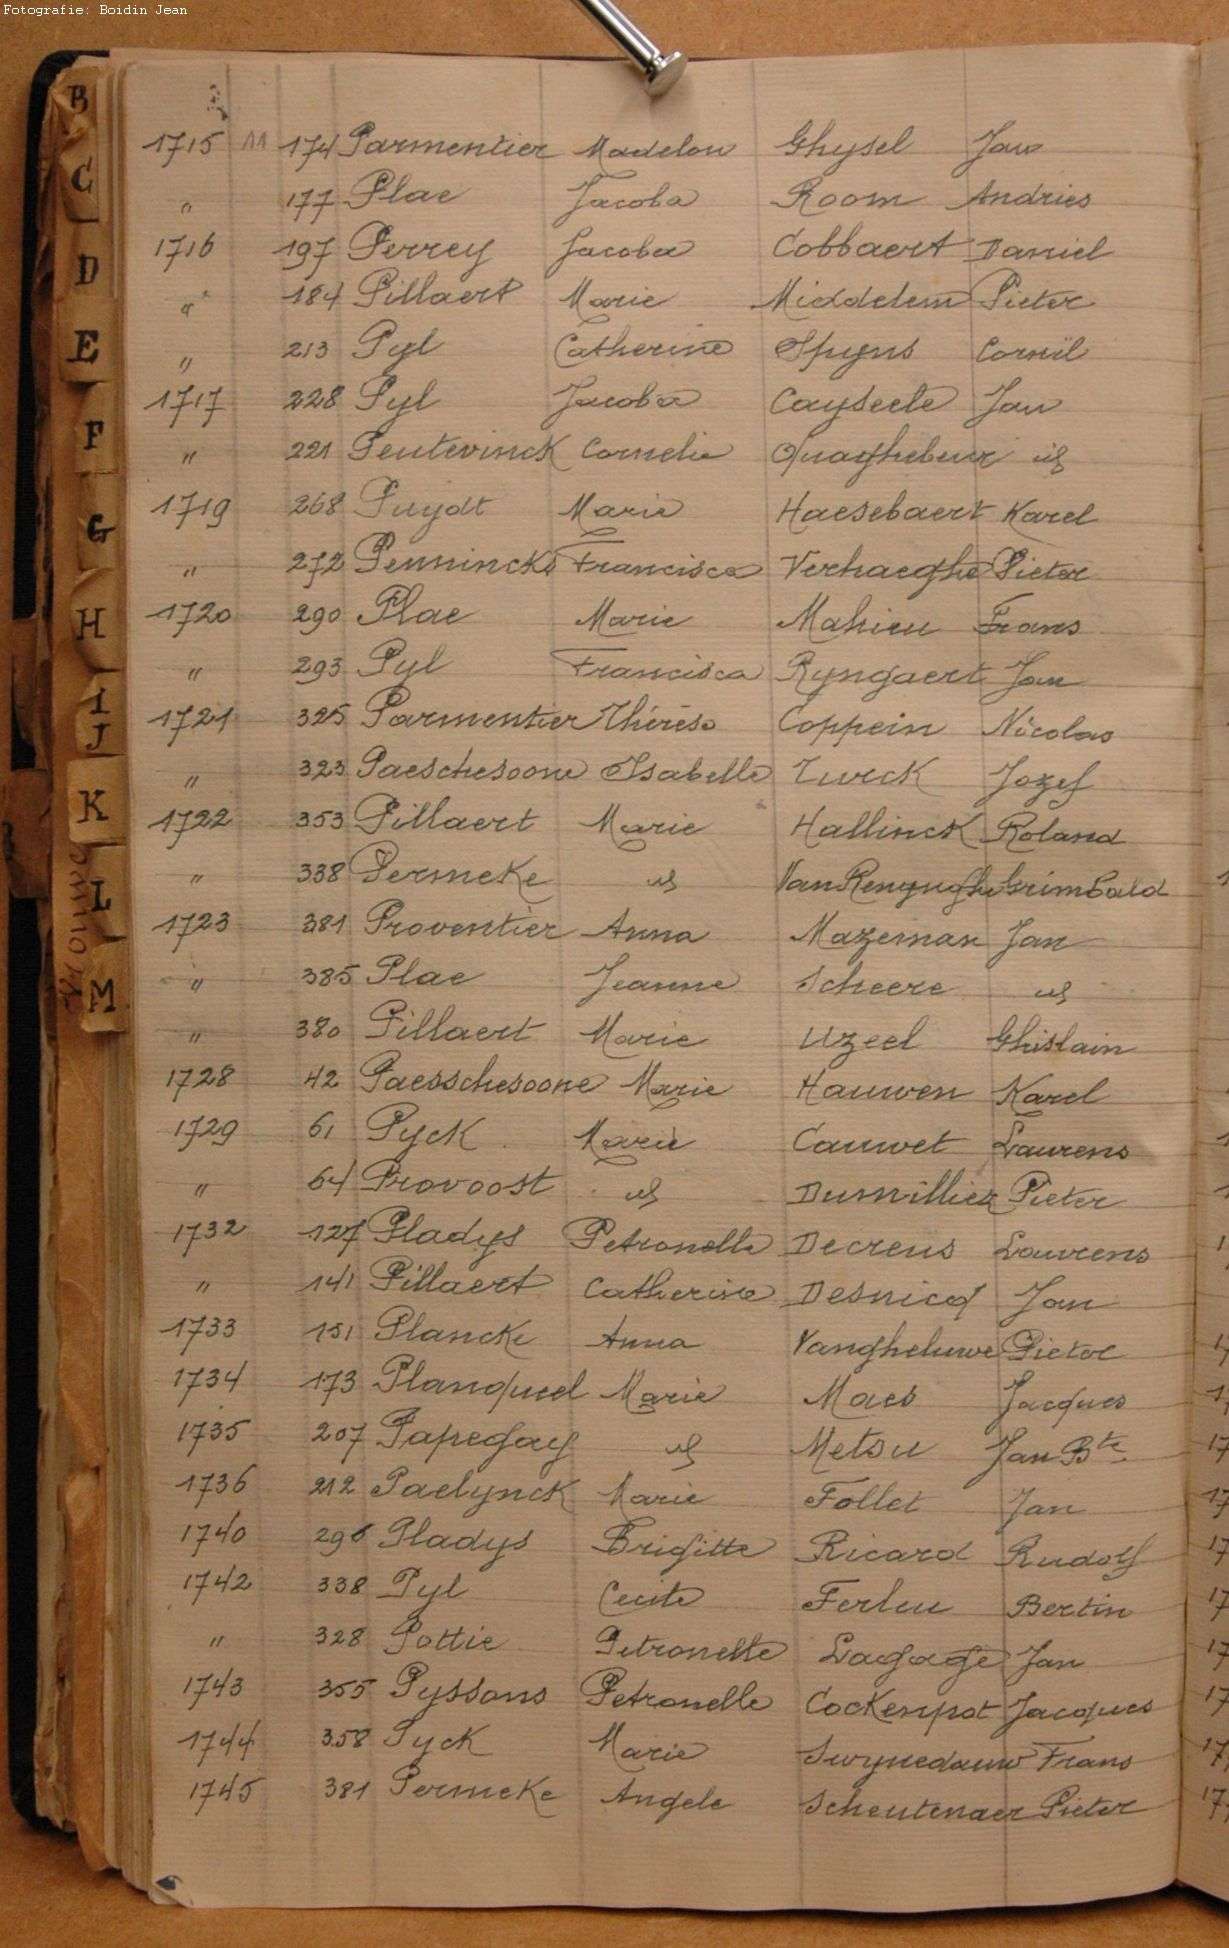 Fotografie: Boidin Jean
B
C
D
E
F
G
H
I J
K
L
M
Vrouwe
1715 11 174 Parmentier Madelon Ghysel Jan
" 177 Plae Jacoba Room Andries
1716 197 Perrey Jacoba Cobbaert Daniel
" 184 Pillaert Marie Middelem Pieter
" 213 Pyl Catherine Spyns Cornil
1717 228 Pyl Jacoba Cayseele Jan
" 221 Peutevinck Cornelie Quaghebeur id
1719 268 Puydt Marie Haesebaert Karel
" 272 Penninck Francisca Verhaeghe Pieter
1720 290 Plae Marie Mahieu Frans
" 293 Pyl Francisca Ryngaert Jan
1721 325 Parmentier Thérèse Coppein Nicolas
" 323 Paeschesoone Isabelle Turck Jozef
1722 353 Pillaert Marie Hallinck Roland
" 338 Permeke id Van Renynghe Grimbald
1723 381 Proventier Anna Mazeman Jan
" 385 Plae Jeanne Scheere id
" 380 Pillaert Marie Uzeel Ghislain
1728 42 Paesschesoone Marie Hauwen Karel
1729 61 Pyck Marie Cauwet Laurens
" 64 Provoost id Dumilliez Pieter
1732 127 Pladys Petronelle Decreus Laurens
" 141 Pillaert Catherine Desnicq Jan
1733 151 Plancke Anna Vangheluwe Pieter
1734 173 Planqueel Marie Maes Jacques
1735 207 Papegaey id Metsu Jan Bte
1736 212 Paelynck Marie Follet Jan
1740 296 Pladys Brigitte Ricard Rudolf
1742 338 Pyl Cecile Ferleu Bertin
" 328 Pottie Petronelle Lagage Jan
1743 355 Pyssons Petronelle Cockenpot Jacques
1744 358 Pyck Marie Swynedauw Frans
1745 381 Permeke Angele Scheutenaer Pieter